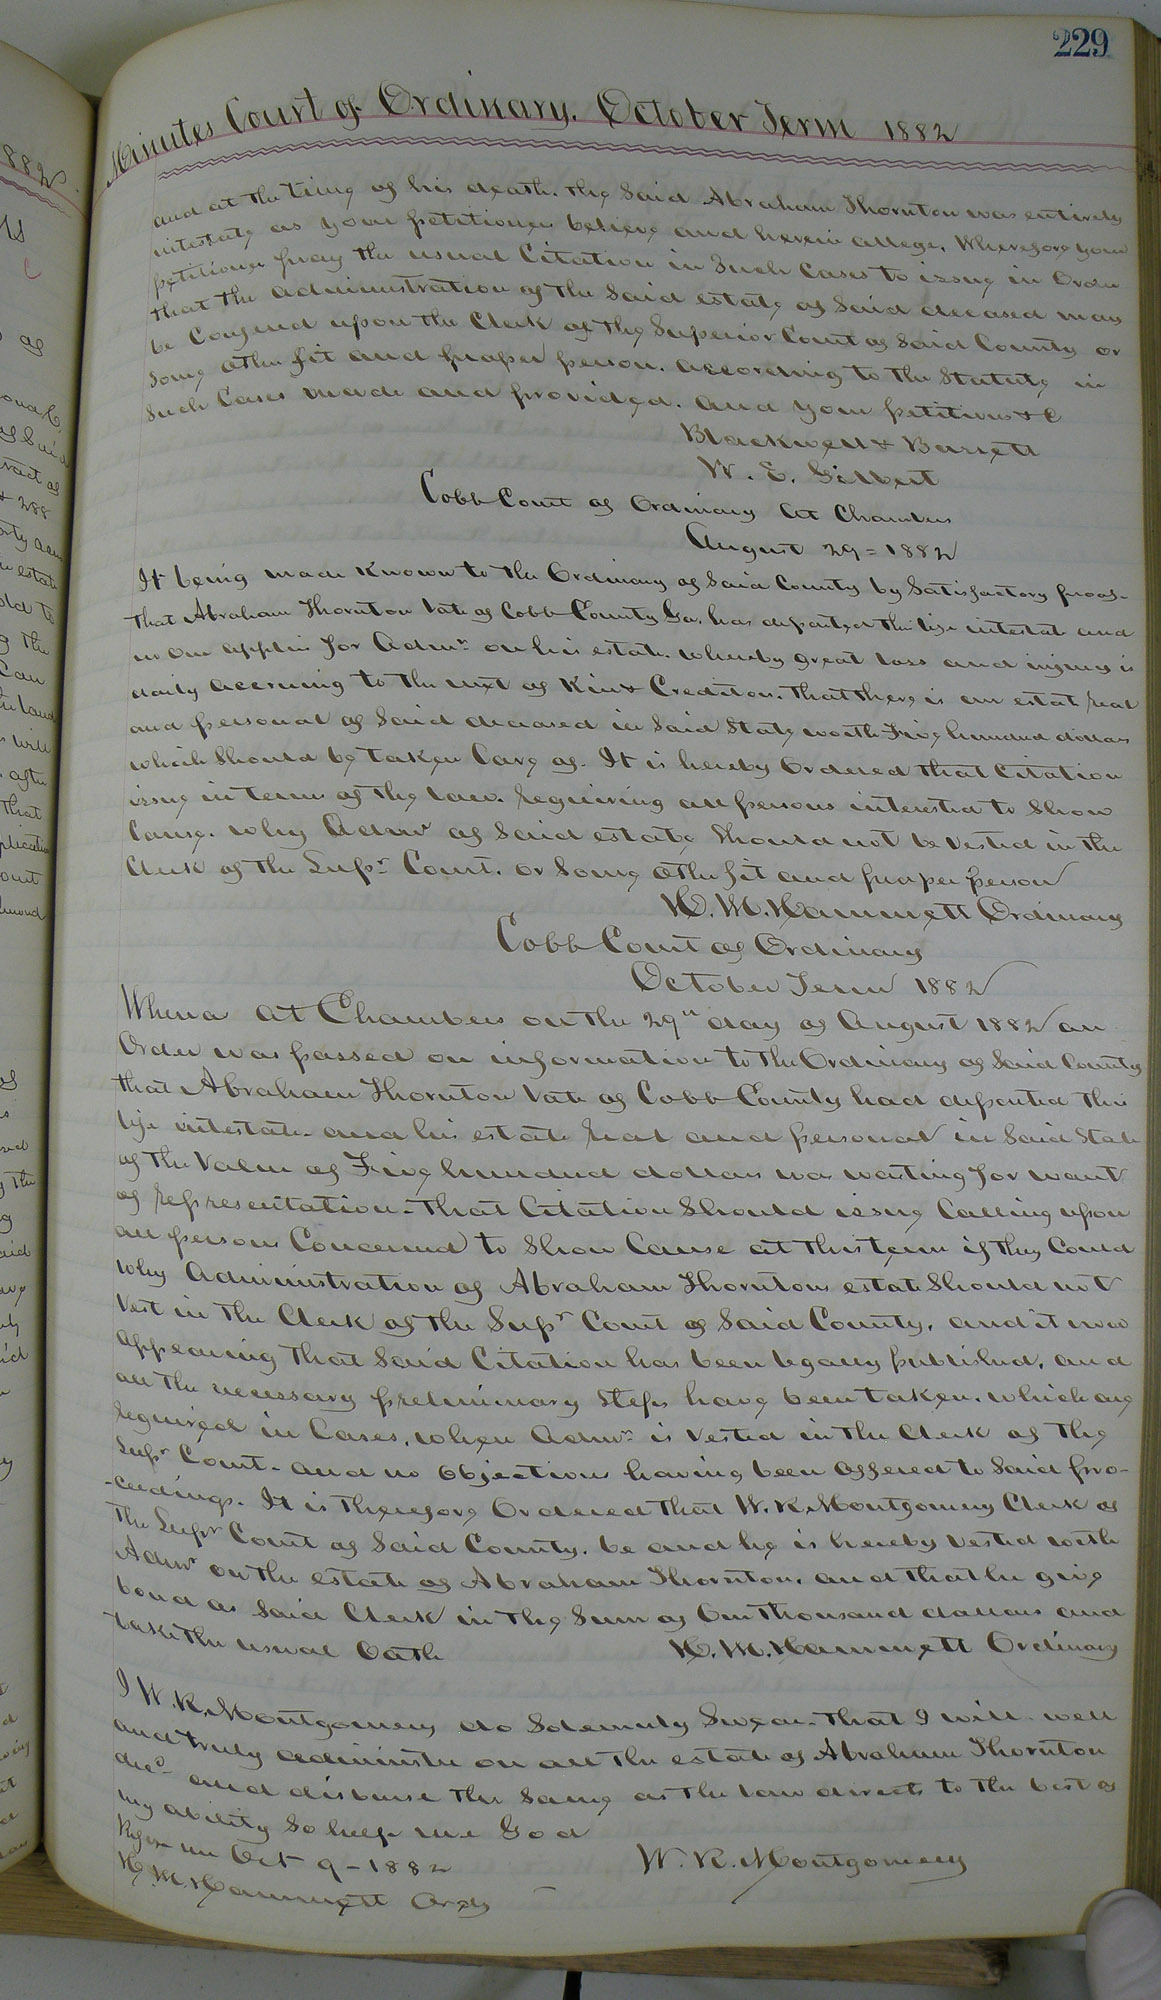 229
Minutes Court of Ordinary. October Term 1882
and at the time of his death. the said Abraham Thornton was entirely
intestate as your petitioner believe and herein allege. Wherefore your
petitioner pray the usual Citation in Such Cases to issue in Order
that the administration of the said estate of said deceased may
be Confered upon the Clerk of the Superior Court of said County or
some other fit and proper person. according to the Statute in
Such Cases made and provided. and your petitioners &C
Blackwell & Barrett
W. E. Gilbert
Cobb Court of Ordinary at Chambers
August 29 = 1882
It being made Known to the Ordinary of Said County by Satisfactory proof-
that Abraham Thornton late of Cobb County Ga. has departed this life intestate and
no one applies for Admr. on his estate. whereby great loss and injury is
daily accruing to the next of Kin & Creditors. that there is an estate real
and personal of said deceased in said State worth Five hundred dollars
which Should be taken Care of. It is hereby Ordered that Citation
issue in terms of the law. requiring all persons interested to show
Cause. why Admr of said estate should not be vested in the
Clerk of the Supr. Court. or some other fit and proper person
H. M. Hammett Ordinary
Cobb Court of Ordinary
October Term 1882
Wheras at Chambers on the 29th day of August 1882 an
Order was passed on information to the Ordinary of Said County
that Abraham Thornton late of Cobb County had departed this
life intestate and his estate real and personal in Said State
of the Value of Five hundred dollars was wasting for want
of representation. that Citation should issue Calling upon
all persons Concerned to Show Cause at this term if they Could
why Administration of Abraham Thornton estate Should not
Vest in the Clerk of the Supr Court of Said County. and it now
appearing that said Citation has been legally published. and
all the necessary preliminary steps have been taken. which are
required in Cases. when Admr. is vested in the Clerk of the
Supr Court. and no Objections having been offered to said pro-
-ceedings. It is therefore Ordered that W. R. Montgomery Clerk of
the Supr Court of Said County. be and he is hereby vested with
Admr on the estate of Abraham Thornton. and that he give
bond as Said Clerk in the Sum of One thousand dollars and
take the usual Oath H. M. Hammett Ordinary
I W. R. Montgomery do Solemnly Swear. that I will well
and truly administer on all the estate of Abraham Thornton
decd and disburse the same as the law directs to the best of
my ability So help me God
Before me Oct 9 - 1882 W. R. Montgomery
H. M. Hammett Ordy